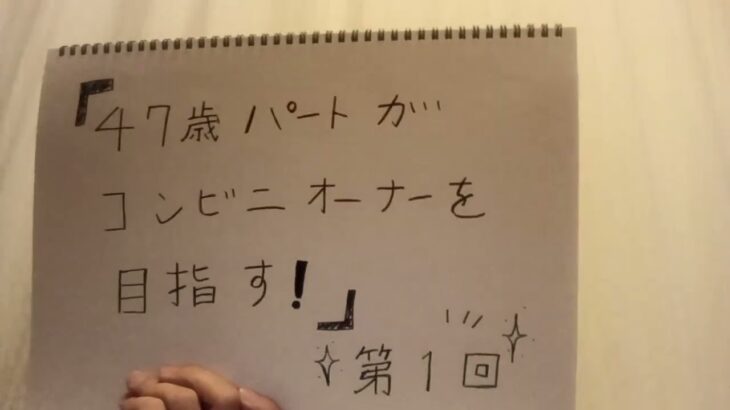 「47歳パートが
コンビニオーナーを
目指す!」
第1回